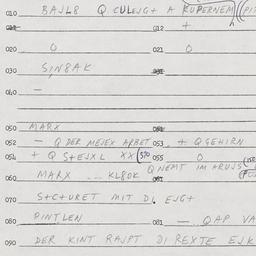 010 BAJL8 Q CULEJG+ A KUPERNEM
012 +
020 0 021 0
030 SINBAK
040 –
050 MARX
052 – Q DER MEJEX ARBET 053 + Q GEHIRN
054 + Q S+EJXL XX (570 055 0
Q NEMT IM ARUJS
060 MARX -- KL8OK
070 S+C+URET MIT DI EJG+
080 PINTLEN 081 – QAP VA
090 DER KINT RAJPT DI REXTE EJK